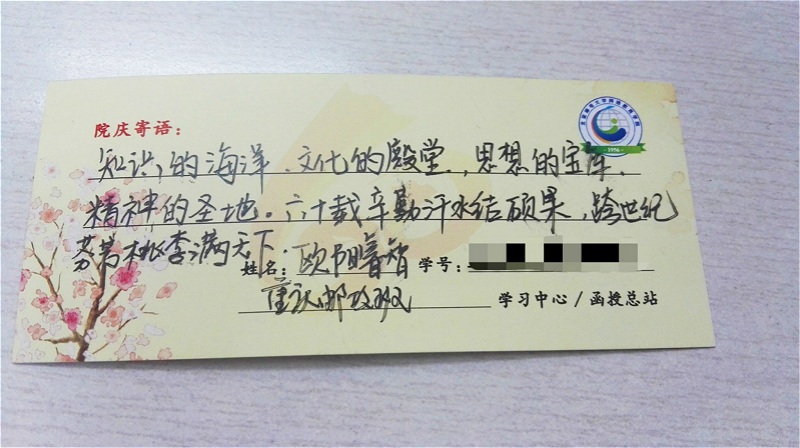 院庆寄语：
知识的海洋、文化的殿堂、思想的宝库、
精神的圣地。六十载辛勤汗水结硕果，跨世纪
芬芳桃李满天下。
姓名：欧阳睿智 学号：
重庆邮政 学习中心／函授总站
1956